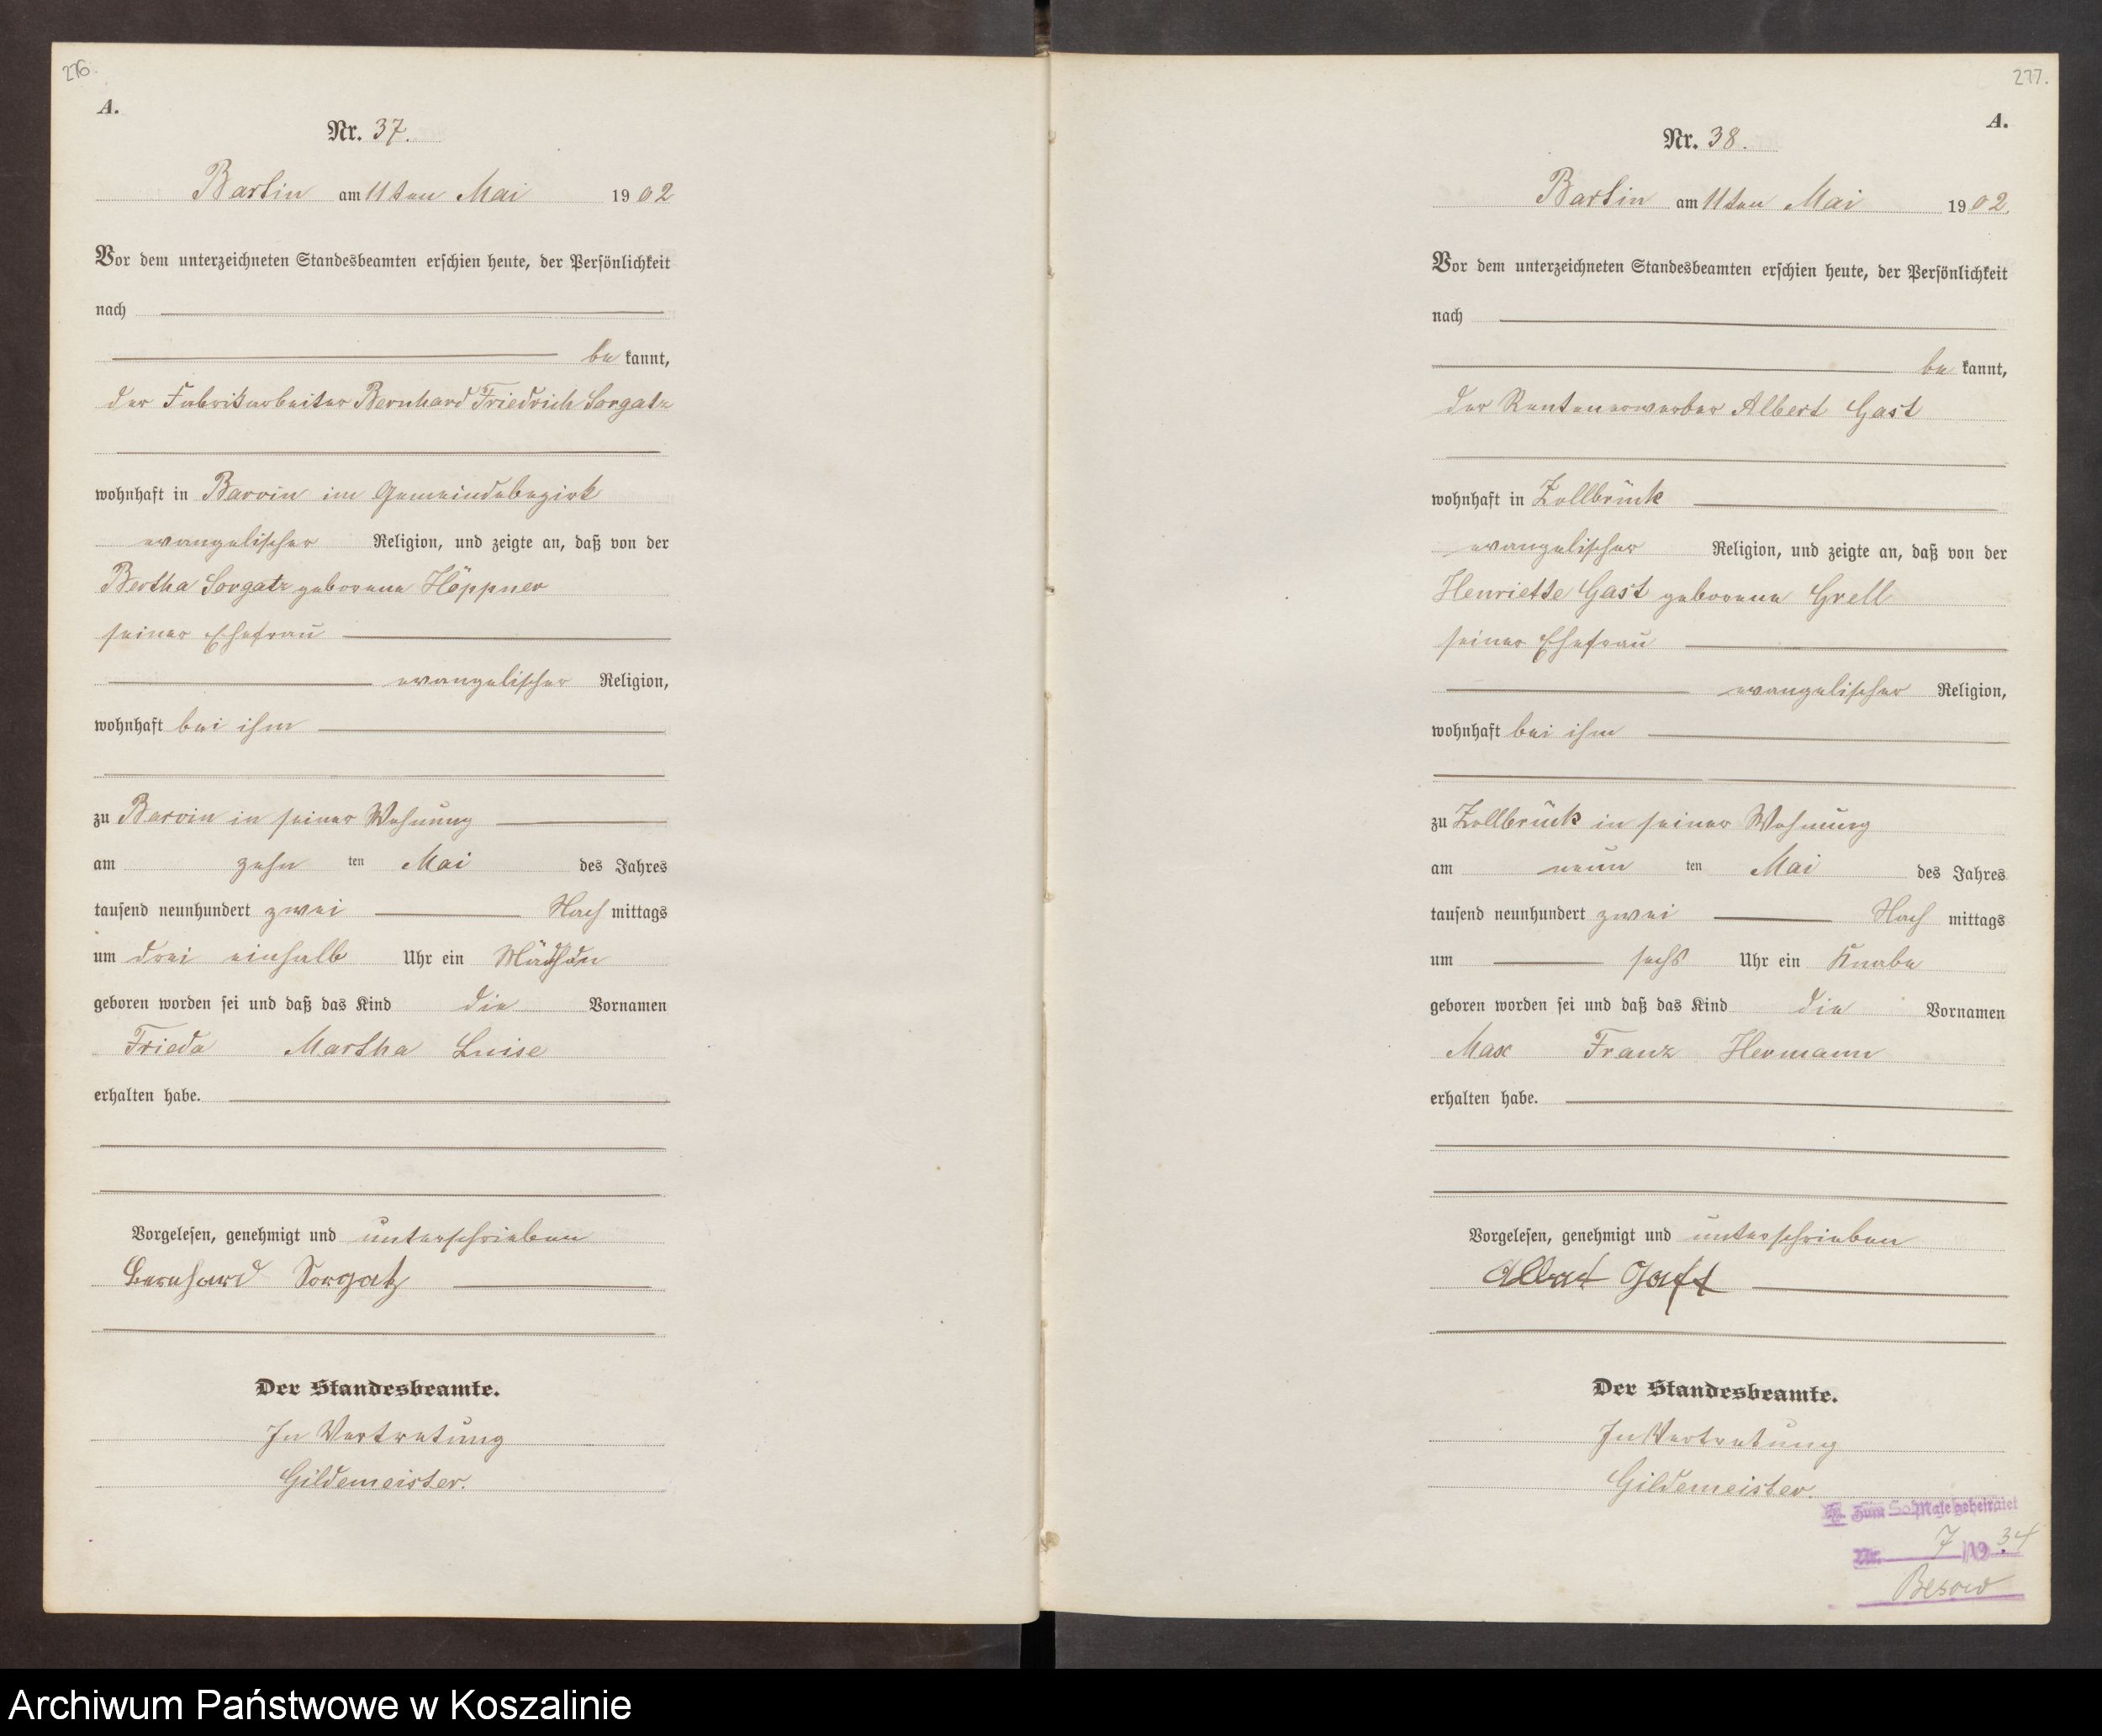 276.
A.
Nr. 37.
Bartin am 11ten Mai 1902
Vor dem unterzeichneten Standesbeamten erschien heute, der Persönlichkeit
nach
be kannt,
der Fabrikarbeiter Bernhard Friedrich Sorgatz
wohnhaft in Barvin im Gemeindebezirk
evangelischer Religion, und zeigte an, daß von der
Bertha Sorgatz geborene Höppner
seiner Ehefrau
evangelischer Religion,
wohnhaft bei ihm
zu Barvin in seiner Wohnung
am zehn ten Mai des Jahres
tausend neunhundert zwei Nach mittags
um drei einhalb Uhr ein Mädchen
geboren worden sei und daß das Kind die Vornamen
Frieda Martha Luise
erhalten habe.
Vorgelesen, genehmigt und unterschrieben
Bernhard Sorgatz
Der Standesbeamte.
In Vertretung
Gildemeister.
277.
A.
Nr. 38.
Bartin am 11ten Mai 1902.
Vor dem unterzeichneten Standesbeamten erschien heute, der Persönlichkeit
nach
be kannt,
der Rentenerwerber Albert Gast
wohnhaft in Zollbrück
evangelischer Religion, und zeigte an, daß von der
Henriette Gast geborene Grell
seiner Ehefrau
evangelischer Religion,
wohnhaft bei ihm
zu Zollbrück in seiner Wohnung
am neun ten Mai des Jahres
tausend neunhundert zwei Nach mittags
um sechs Uhr ein Knabe
geboren worden sei und daß das Kind die Vornamen
Max Franz Hermann
erhalten habe.
Vorgelesen, genehmigt und unterschrieben
Albert Gast
Der Standesbeamte.
In Vertretung
Gildemeister.
Zum Male geheiratet
Nr. 7 19 34
Besow
Archiwum Państwowe w Koszalinie